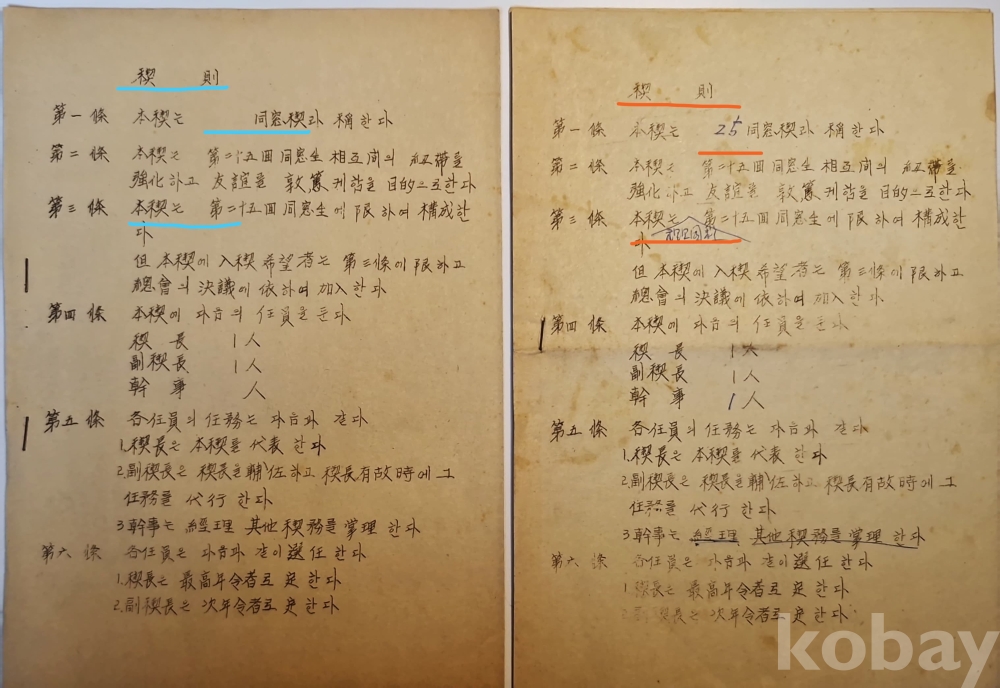 稧 則
第一條 本稧는 同窓稧라 稱한다
第二條 本稧는 第二十五回同窓生相互間의 紐帶를
強化하고 友誼를 敦篤케함을 目的으로한다
第三條 本稧는 第二十五回同窓生에限하여 構成한
다
但本稧에入稧希望者는 第三條에限하고
總會의決議에依하여加入한다
第四條 本稧에다음의任員을둔다
稧長 1人
副稧長 1人
幹事 人
第五條 各任員의任務는 다음과 같다
1.稧長은本稧를 代表한다
2.副稧長은 稧長을輔佐하고 稧長有故時에그
任務를 代行한다
3幹事는 經理 其他稧務를掌理한다
第六條 各任員은 다음과 같이選任한다
1.稧長은 最高年令者로 定한다
2.副稧長은 次年令者로 定한다
稧 則
第一條 本稧는 25同窓稧라 稱한다
第二條 本稧는 第二十五回同窓生相互間의 紐帶를
強化하고 友誼를 敦篤케함을目的으로한다
第三條 本稧는 第二十五回同窓生에限하여構成한
다
但本稧에入稧希望者는 第三條에限하고
總會의決議에依하여加入한다
第四條 本稧에다음의任員을둔다
稧長 1人
副稧長 1人
幹事 1人
第五條 各任員의任務는 다음과 같다
1.稧長은本稧를 代表한다
2.副稧長은 稧長을輔佐하고 稧長有故時에그
任務를 代行한다
3幹事는 經理 其他稧務를掌理한다
第六條 各任員은 다음과 같이選任한다
1稧長은 最高年令者로 定한다
2.副稧長은 次年令者로 定한다
kobay